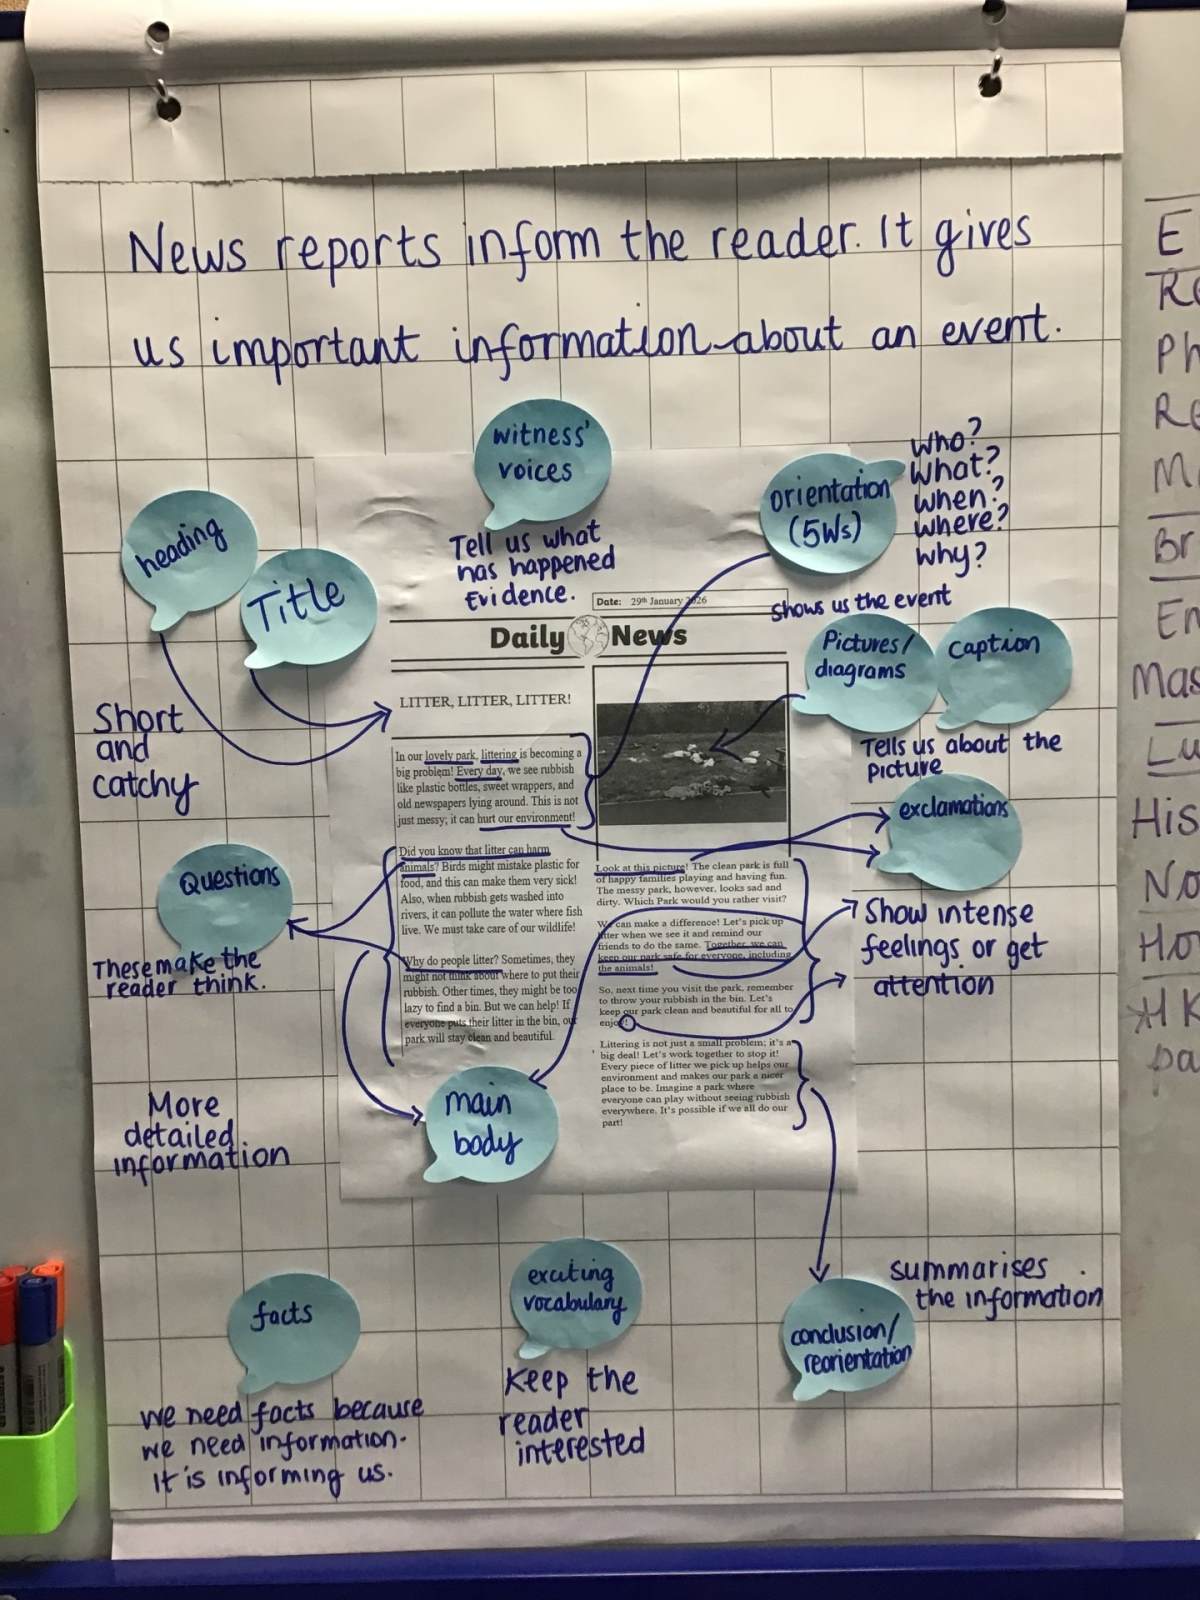 News reports inform the reader. It gives
us important information about an event.
witness'
voices
Tell us what
has happened
Evidence.
orientation
(5Ws)
Who?
What?
when?
where?
why?
heading
Title
Short
and
catchy
Date: 29th January 2026
Daily News
shows us the event
Pictures/
diagrams
caption
Tells us about the
picture
LITTER, LITTER, LITTER!
In our lovely park, littering is becoming a
big problem! Every day, we see rubbish
like plastic bottles, sweet wrappers, and
old newspapers lying around. This is not
just messy; it can hurt our environment!
Did you know that litter can harm
animals? Birds might mistake plastic for
food, and this can make them very sick!
Also, when rubbish gets washed into
rivers, it can pollute the water where fish
live. We must take care of our wildlife!
Why do people litter? Sometimes, they
might not think about where to put their
rubbish. Other times, they might be too
lazy to find a bin. But we can help! If
everyone puts their litter in the bin, our
park will stay clean and beautiful.
Look at this picture! The clean park is full
of happy families playing and having fun.
The messy park, however, looks sad and
dirty. Which Park would you rather visit?
We can make a difference! Let's pick up
litter when we see it and remind our
friends to do the same. Together, we can
keep our park safe for everyone, including
the animals!
So, next time you visit the park, remember
to throw your rubbish in the bin. Let's
keep our park clean and beautiful for all to
enjoy!
Littering is not just a small problem; it's a
big deal! Let's work together to stop it!
Every piece of litter we pick up helps our
environment and makes our park a nicer
place to be. Imagine a park where
everyone can play without seeing rubbish
everywhere. It's possible if we all do our
part!
exclamations
Show intense
feelings or get
attention
Questions
These make the
reader think.
main
body
More
detailed
information
facts
we need facts because
we need information.
It is informing us.
exciting
vocabulary
Keep the
reader
interested
conclusion/
reorientation
summarises
the information
E
Re
Ph
Re
Br
Em
Mas
Lu
His
No
Ho
*HK
pa